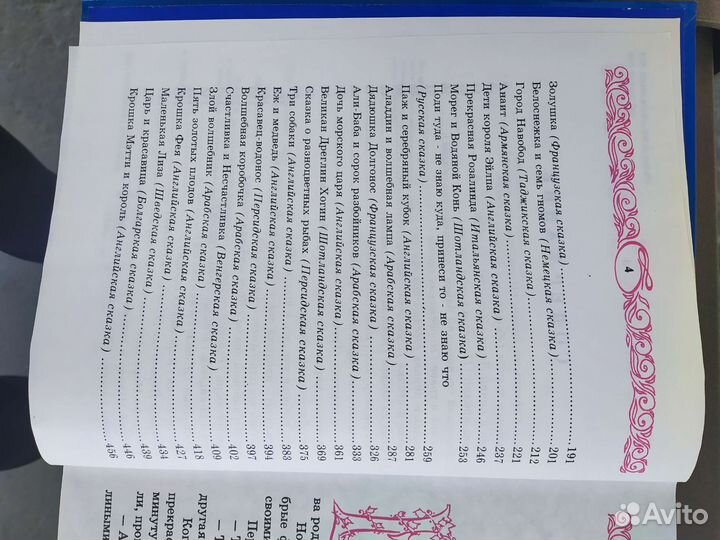 4
Золушка (Французская сказка) 191
Белоснежка и семь гномов (Немецкая сказка) 201
Город Навобод (Таджикская сказка) 212
Анаит (Армянская сказка) 221
Дети короля Эйлпа (Английская сказка) 237
Прекрасная Розалинда (Итальянская сказка) 246
Морег и Водяной Конь (Шотландская сказка) 253
Поди туда - не знаю куда, принеси то - не знаю что
(Русская сказка) 259
Паж и серебряный кубок (Английская сказка) 281
Аладдин и волшебная лампа (Арабская сказка) 287
Дядюшка Долгонос (Французская сказка) 326
Али-Баба и сорок разбойников (Арабская сказка) 333
Дочь морского царя (Английская сказка) 361
Великан Дреглин Хогни (Шотландская сказка) 369
Сказка о разноцветных рыбах (Персидская сказка) 375
Три собаки (Английская сказка) 383
Еж и медведь (Английская сказка) 394
Красавец-водонос (Персидская сказка) 397
Волшебная коробочка (Арабская сказка) 402
Счастливка и Несчастливка (Венгерская сказка) 409
Злой волшебник (Арабская сказка) 418
Пять золотых плодов (Английская сказка) 427
Крошка Фея (Английская сказка) 434
Маленькая Лиза (Шведская сказка) 439
Царь и красавица (Болгарская сказка) 446
Крошка Мэтти и король (Английская сказка) 456
ва род
Но
брые
своими
Пер
— Т
— Т
другая
Ког
прекрас
минуту
ли, про
— А
Avito